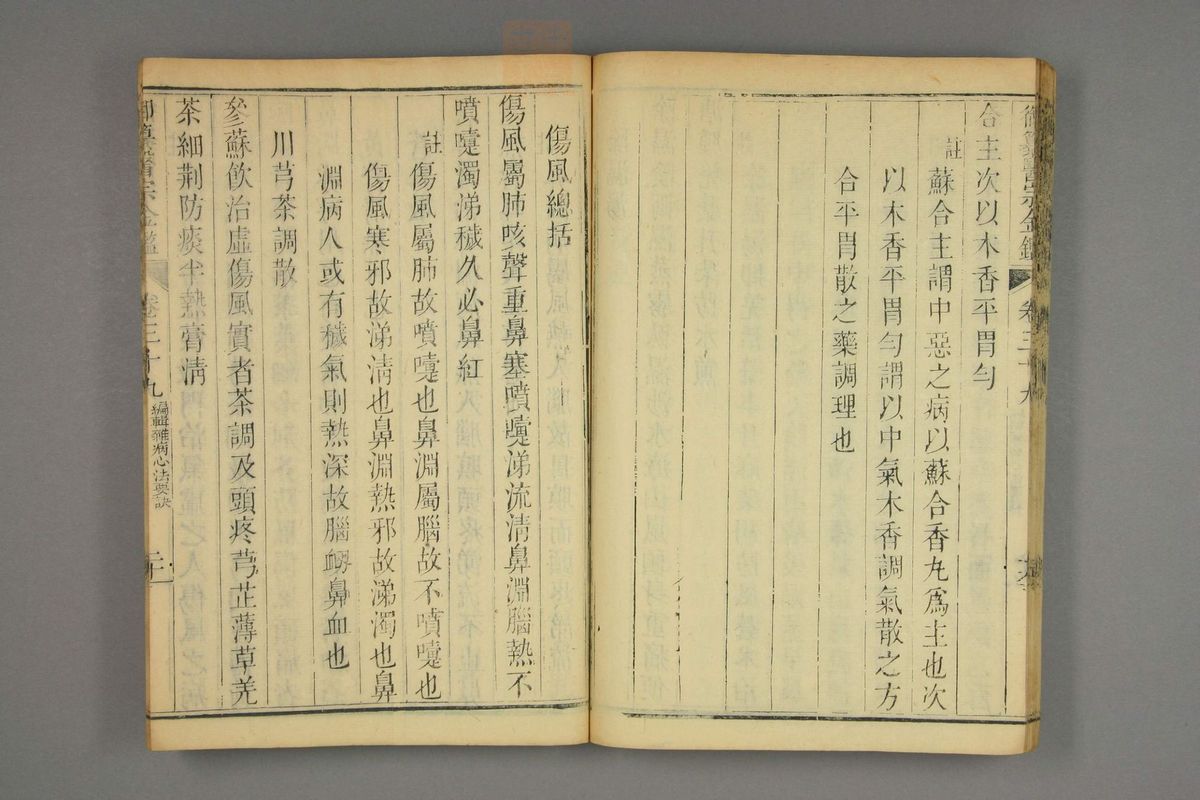 合主次以木香平胃勻
註
蘇合主謂中惡之病以蘇合香丸爲主也次
以木香平胃勻謂以中氣木香調氣散之方
合平胃散之藥調理也
傷風總括
傷風屬肺咳聲重鼻塞噴嚏涕流清鼻淵腦熱不
噴嚏濁涕穢久必鼻紅
註
傷風屬肺故噴嚏也鼻淵屬腦故不噴嚏也
傷風寒邪故涕清也鼻淵熱邪故涕濁也鼻
淵病人或有穢氣則熱深故腦衂鼻血也
川芎茶調散
參蘇飲治虛傷風實者茶調及頭疼芎芷薄草羌
茶細荆防痰半熱膏清
御纂醫宗金鑑 卷三十九 編輯雜病心法要訣